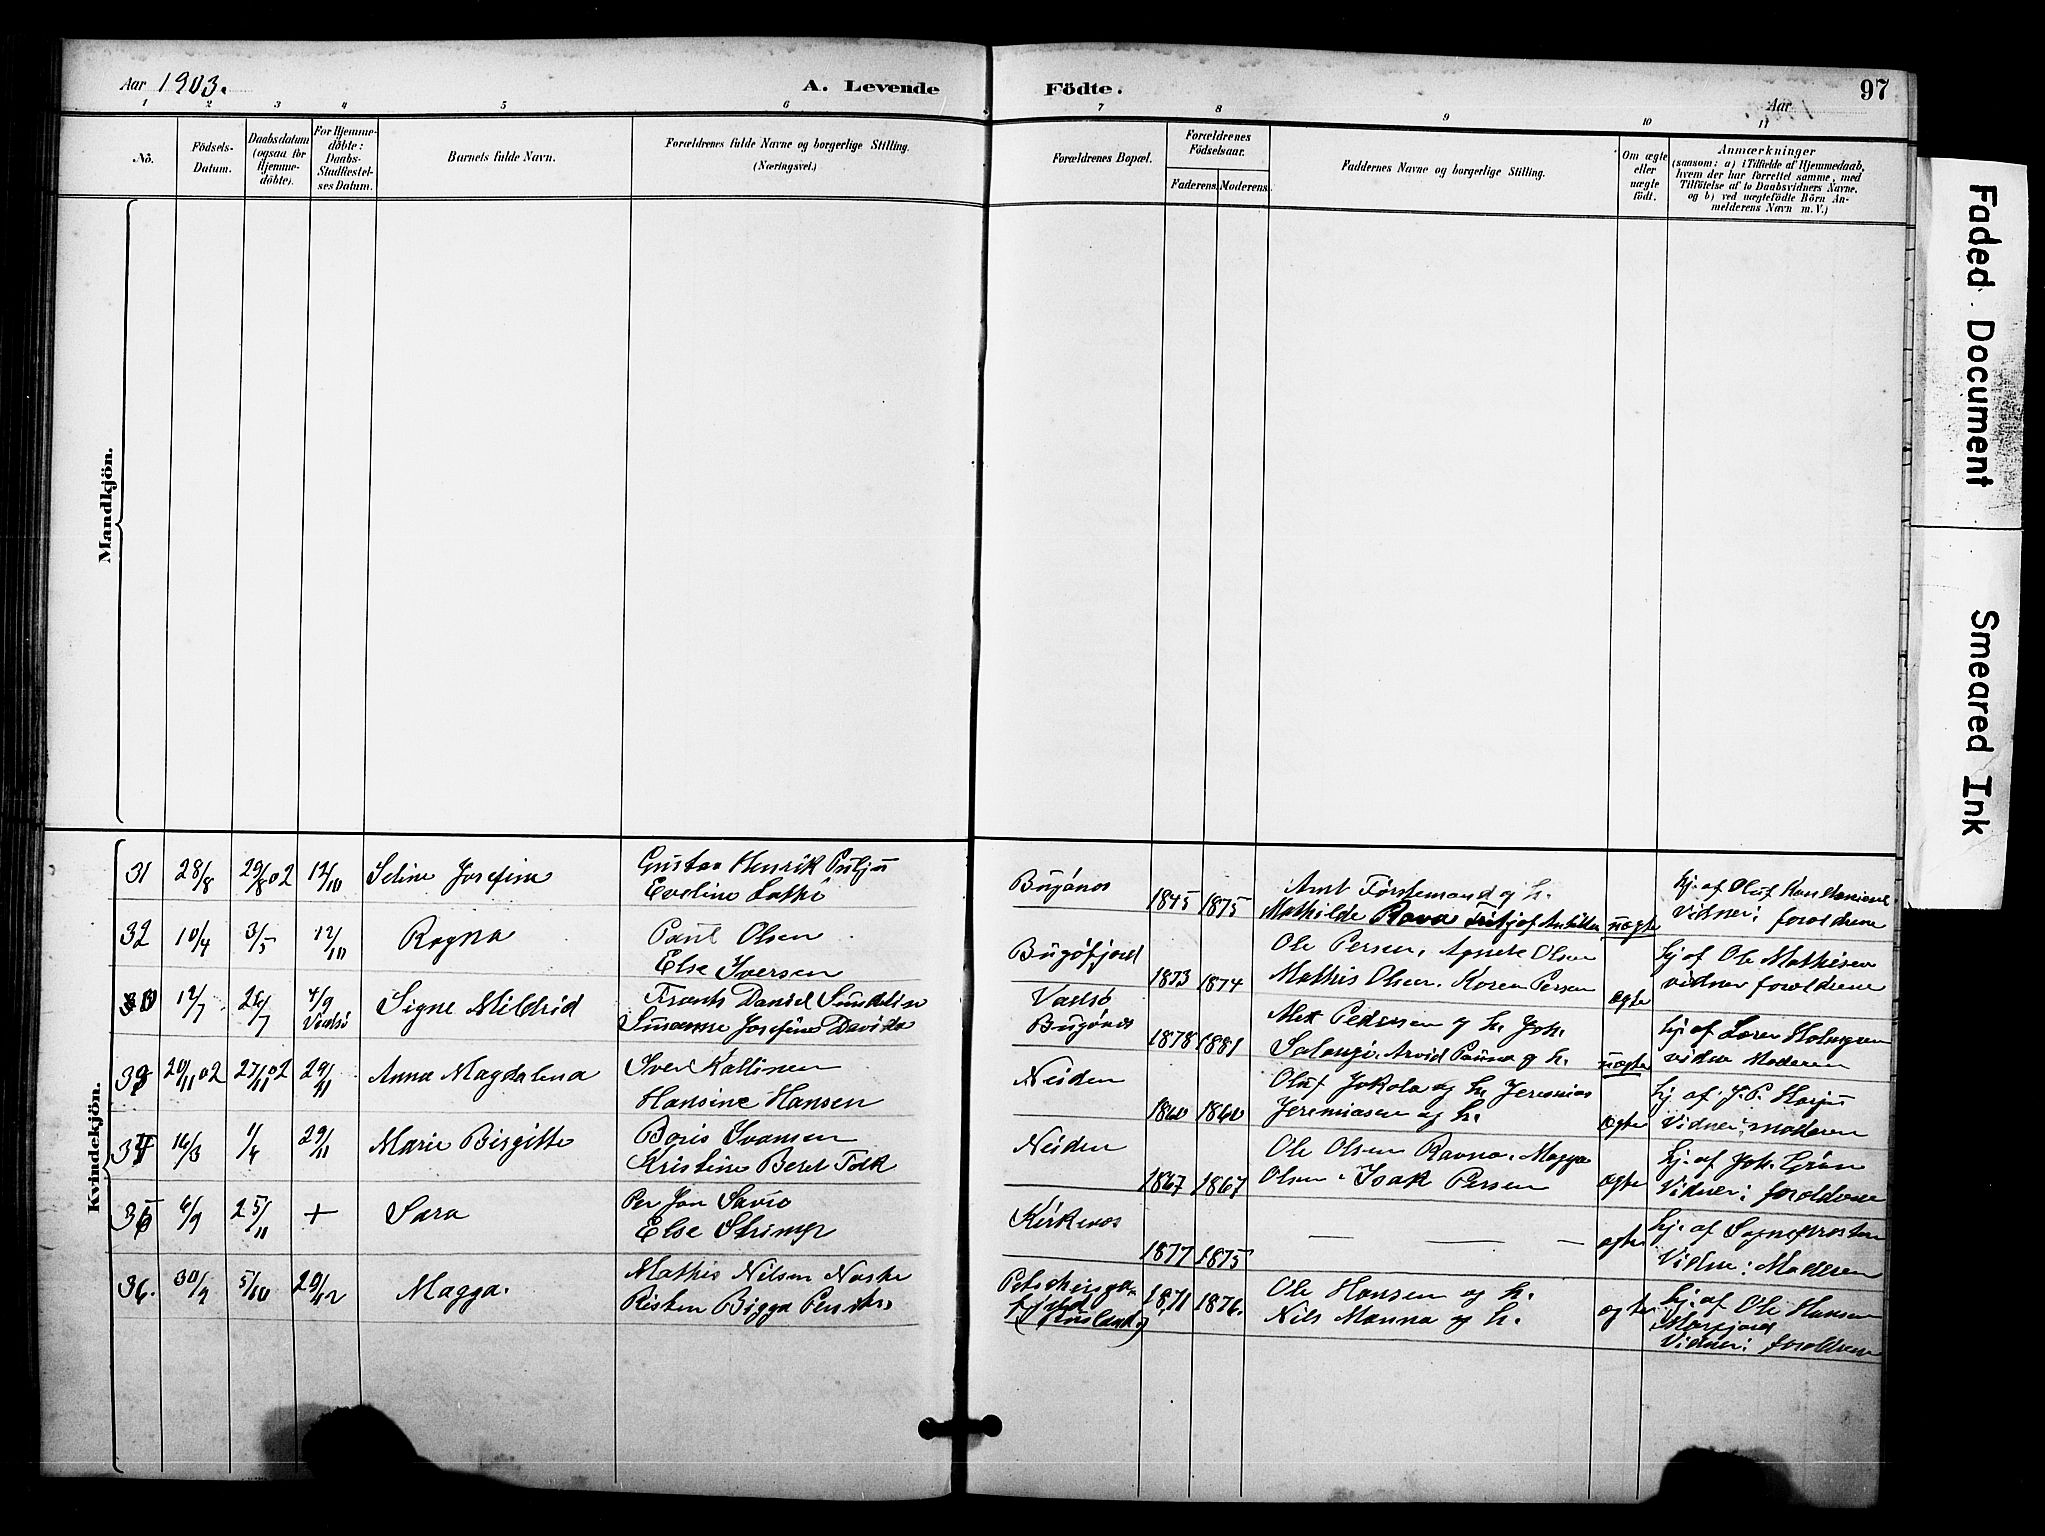 Aar 1903.
A. Levende Födte.
Aar
97
1 2 3 4 5 6 7 8 9 10 11
No.
Födsels-Datum.
Daabsdatum (ogsaa for Hjemme-döbte).
For Hjemme-döbte: Daabs-Stadfæstel-ses Datum.
Barnets fulde Navn.
Forældrenes fulde Navne og borgerlige Stilling.
(Næringsvei.)
Forældrenes Bopæl.
Forældrenes Födselsaar.
Faderens. Moderens.
Faddernes Navne og borgerlige Stilling.
Om ægte eller uægte födt.
Anmærkninger
(saasom: a) i Tilfælde af Hjemmedaab,
hvem der har forrettet samme, med
Tilföielse af to Daabsvidners Navne,
og b) ved uægtefödte Börn An-
melderens Navn m. V.)
Mandkjön.
Kvindekjön.
31 28/8 29/8 02 12/10 Seline Josefine
Gustav Henrik
Eveline
Bugönes 1845 1875
og h.
Mathilde uægte
hj. af Oluf
Vidner: forældrene
32 10/4 3/5 12/10 Ragna
Paul Olsen
Else Iversen
Bugöfjord 1873 1874
Ole Persen, Agnete Olsen
Mathis Olsen, Karen Persen ægte
hj. af Ole Mathisen
vidner forældrene
12/7 26/7 4/9 Vadsö Signe Mildrid
Frants Daniel
Susanne Josefine
Vadsö
Bugönes 1878 1881
Pedersen og h. Joh.
Arvid og h. uægte
hj. af
vidne Moderen
20/11 02 27/11 02 29/11 Anna Magdalena
Iver Kallinen
Hansine Hansen
Neiden 1860 1860
Oluf Jokola og h. Jeremias
Jeremiasen og h. ægte
hj. af J. P.
Vidner: moderen
34 16/3 1/4 29/11 Marie Birgitte
Boris Ivansen
Kristine Beret
Neiden 1867 1867
Ole Olsen Ravna, Magga
Olsen, Isak Persen ægte
hj. af Joh. Grön
Vidner: forældrene
35 6/9 25/11 + Sara
Per Jon Savio
Else Strimp
Kirkenes 1877 1875
— — — ægte
hj. af Sognepresten
Vidne: Moderen
36. 30/9 5/10 29/12 Magga.
Mathis Nilsen
Risten Bigga
Petschenga
(Rusland.) 1871 1876.
Ole Hansen og h.
Nils Manna og h. ægte
hj. af Ole Hansen
Vidner: forældrene
Faded Document
Smeared Ink